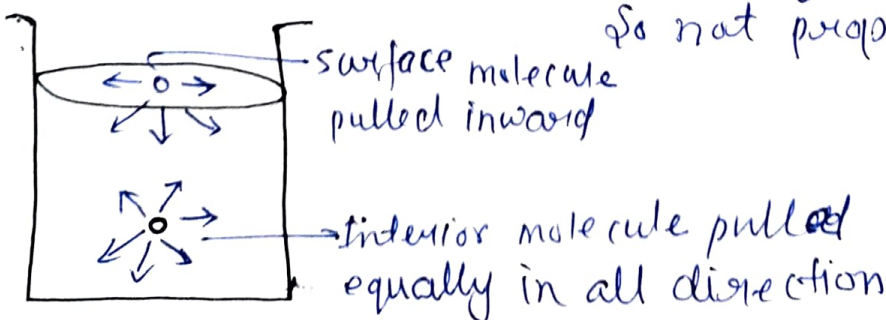 So not prop
surface molecule
pulled inward
Interior molecule pulled
equally in all direction